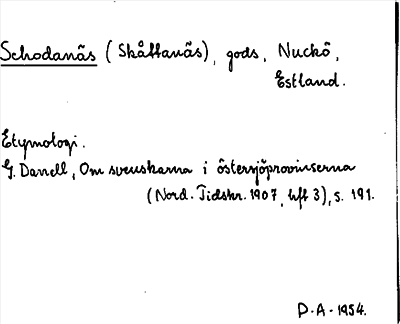 Schodanäs (Skåttanäs), gods, Nuckö,
Estland.
Etymologi.
G. Danell, Om svenskarna i östersjöprovinserna
(Nord. Tidskr. 1907, hft 3), s. 191.
D.A. 1954.